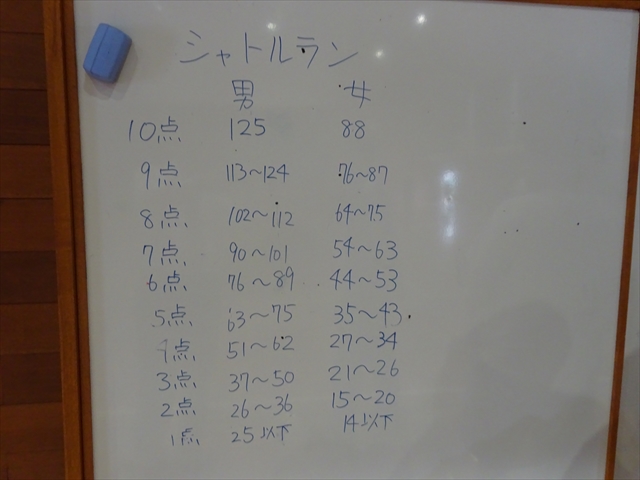 シャトルラン
男 女
10点 125 88
9点 113~124 76~87
8点 102~112 64~75
7点 90~101 54~63
6点 76~89 44~53
5点 63~75 35~43
4点 51~62 27~34
3点 37~50 21~26
2点 26~36 15~20
1点 25以下 14以下